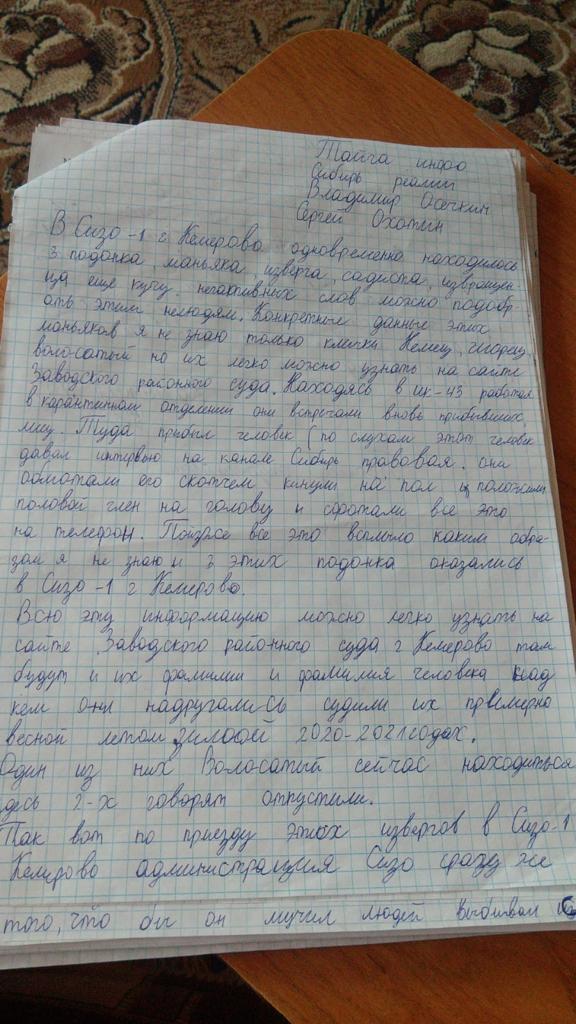 Тайга инфо
Сибирь реалии
Владимир Осечкин
Сергей Охотин
В Сизо-1 г. Кемерово одновременно находилось
3 подонка, маньяка, изверга, садиста, извращен-
ца еще кучу негативных слов можно подобр-
ать этим нелюдям. Конкретные данные этих
маньяков я не знаю только клички Немец,
волосатый но их легко можно узнать на сайте
Заводского районного суда. Находясь в ик-43 работая
в карантинном отделении они встречали вновь прибывших
лиц. Туда прибыл человек (по слухам этот человек
давал интервью на канале Сибирь правовая. они
обмотали его скотчем кинули на пол и положили
половой член на голову и сфоткали все это
на телефон. Позже все это всплыло каким обра-
зом я не знаю и 3 этих подонка оказались
в Сизо-1 г Кемерово.
Всю эту информацию можно легко узнать на
сайте Заводского районного суда г Кемерово там
будут и их фамилии и фамилия человека над
кем они надругались судили их примерно
весной летом зимой 2020-2021 годах.
Один из них Волосатый сейчас находиться
здесь 2-х говорят отпустили.
Так вот по приезду этих извергов в Сизо-1
Кемерово администрация Сизо сразу же
того, что бы он мучил людей выбивал